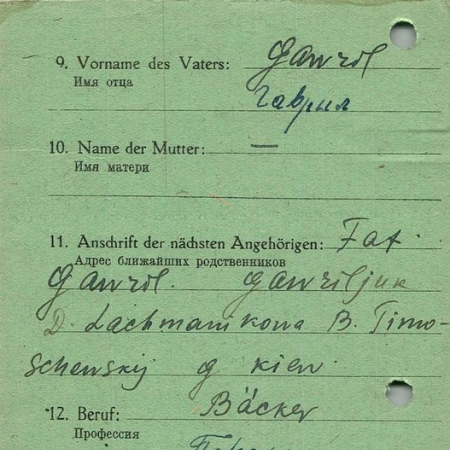 9. Vorname des Vaters: Gawril
Имя отца
Гаврил
10. Name der Mutter: —
Имя матери
11. Anschrift der nächsten Angehörigen: Fat.
Адрес ближайших родственников
Gawril. Gawriljuk
D. Lachmanikowa B. Timo-
schenskij g kiew.
12. Beruf: Bäcker
Профессия